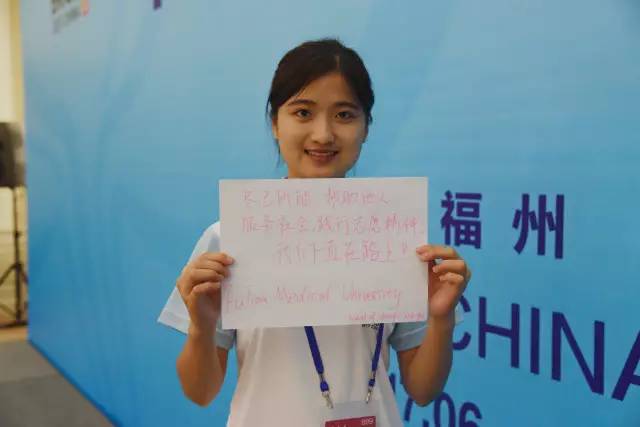 尽己所能 帮助他人
服务社会,践行志愿精神,
我们一直在路上。
Fujian Medical University
福州
CHINA
17.06
889